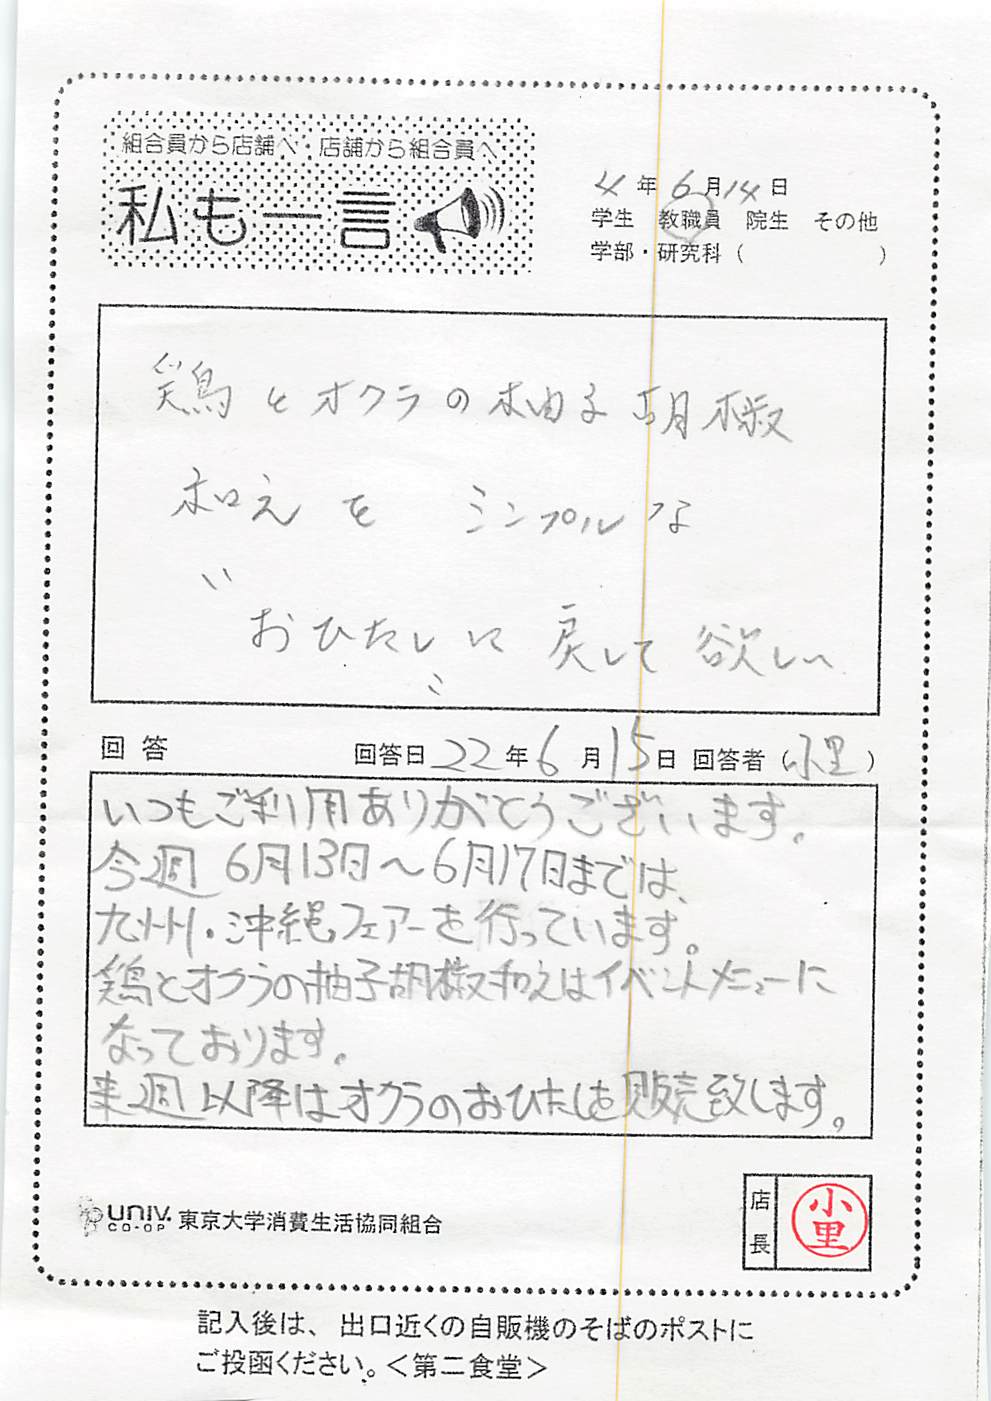 組合員から店舗へ・店舗から組合員へ
私も一言
4年6月14日
学生 教職員 院生 その他
学部・研究科( )
鶏とオクラの柚子胡椒
和えを シンプルな
"おひたし"に戻して欲しい
回答 回答日22年6月15日 回答者(小里)
いつもご利用ありがとうございます。
今週6月13日〜6月17日までは、
九州・沖縄フェアーを行っています。
鶏とオクラの柚子胡椒和えはイベントメニューに
なっております。
来週以降はオクラのおひたしを販売致します。
UNIV. CO-OP 東京大学消費生活協同組合
店長 小里
記入後は、出口近くの自販機のそばのポストに
ご投函ください。<第二食堂>